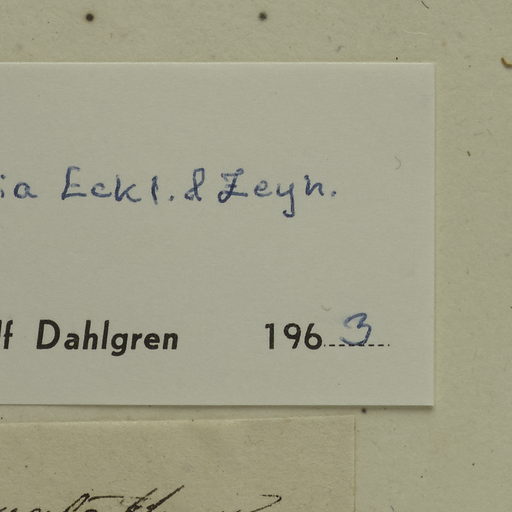 ia Eckl. & Zeyh.
lf Dahlgren 1963